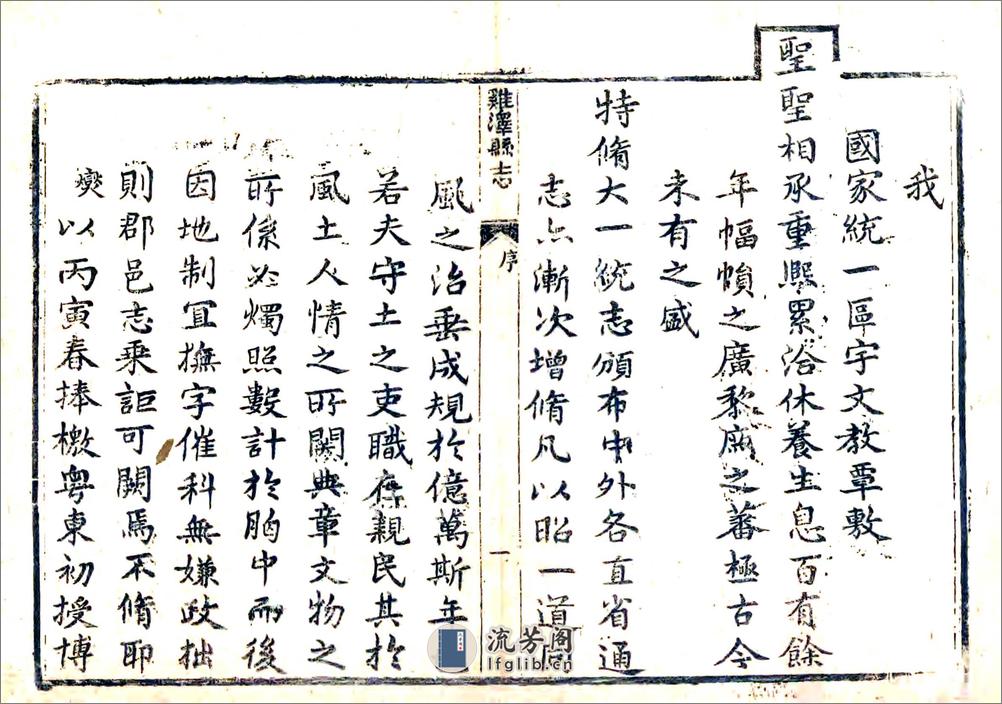 我
國家統一區宇文教覃敷
聖聖相承重熈累洽休養生息百有餘
年幅幀之廣黎庶之蕃極古今
未有之盛
特脩大一統志頒布中外各直省通
志亦漸次增脩凡以昭一道同
雞澤縣志 序 一
風之治垂成規於億萬斯年
若夫守土之吏職在親民其於
風土人情之所關典章文物之
所係必燭照數計於胸中而後
因地制宜撫字催科無嫌政拙
則郡邑志乘詎可闕焉不脩耶
燮以丙寅春捧檄粤東初授博
流芳阁
lfglib.cn